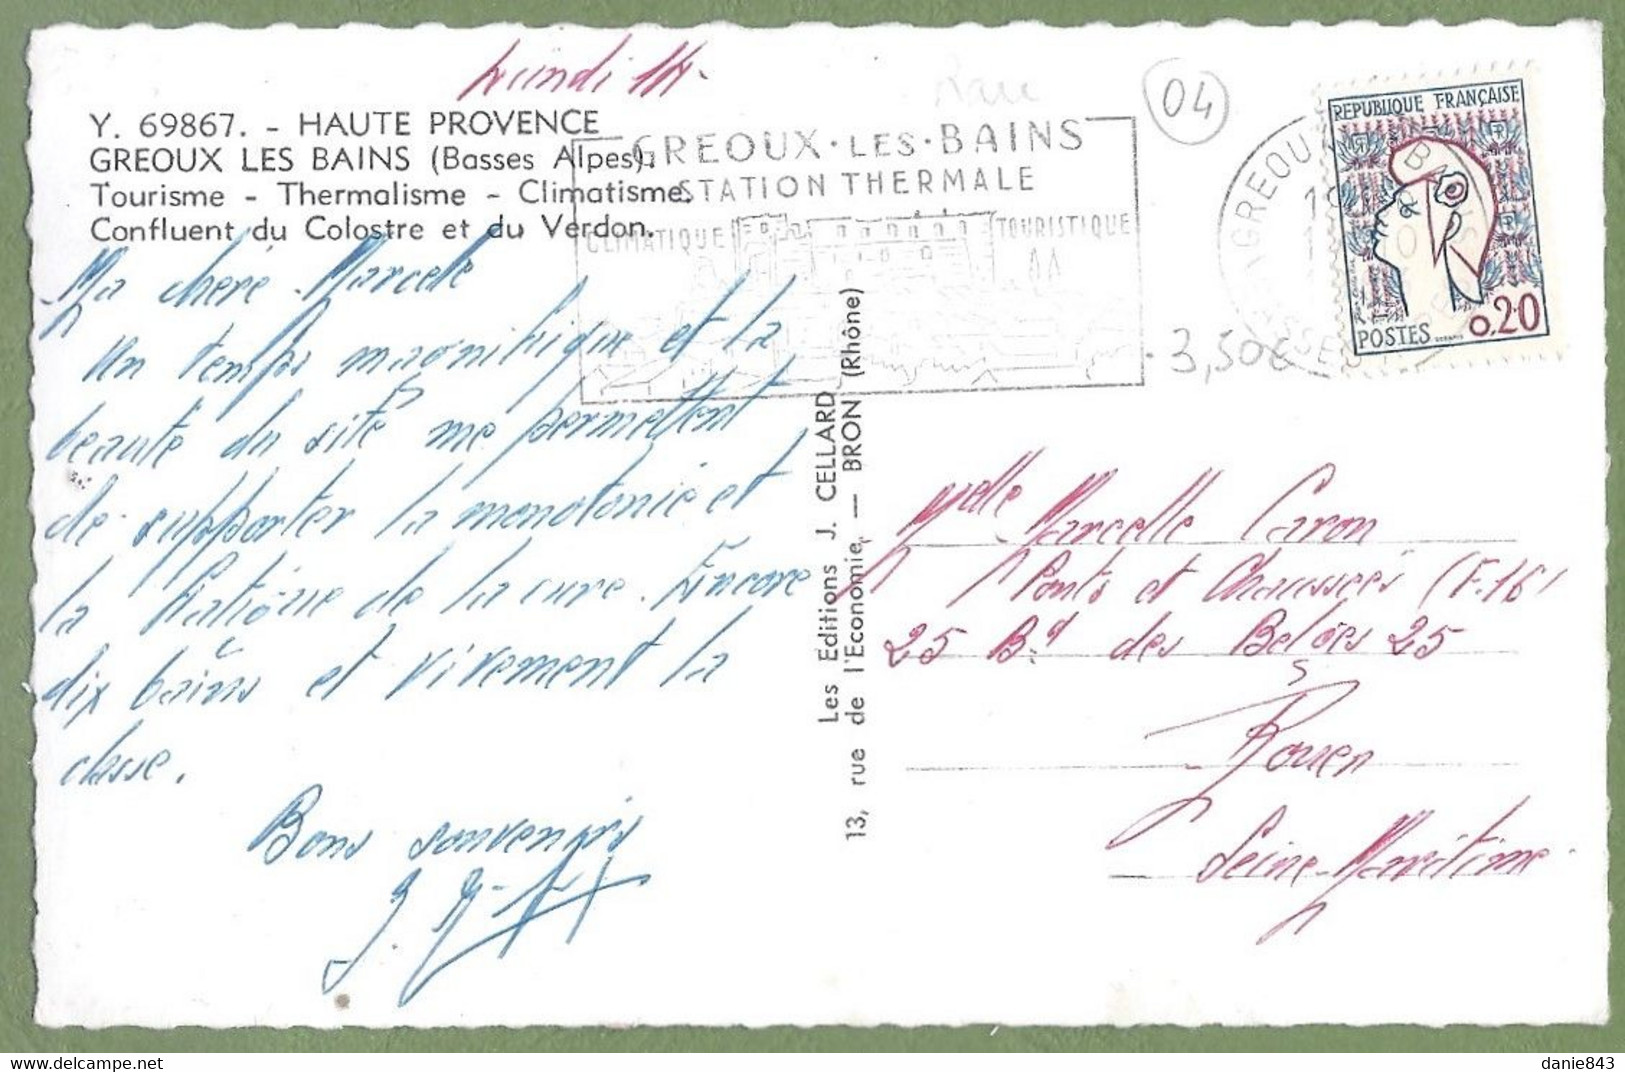 Lundi 14.
Rare
04
Y. 69867. - HAUTE PROVENCE
GREOUX LES BAINS (Basses Alpes).
Tourisme - Thermalisme - Climatisme.
Confluent du Colostre et du Verdon.
GREOUX·LES·BAINS
STATION THERMALE
CLIMATIQUE
TOURISTIQUE
GREOUX BAINS
REPUBLIQUE FRANÇAISE
POSTES 0,20
3,50€
Ma chère Marcelle
Un temps magnifique et la
beauté du site me permettent
de supporter la monotonie et
la fatigue de la cure. Encore
dix bains et vivement la
classe.
Bons souvenirs
Les Editions J. CELLARD
13, rue de l'Economie, — BRON (Rhône)
Melle Marcelle Caron
Ponts et Chaussées (F.16)
25 Bd des Belges 25
Rouen
Seine-Maritime.
danie843